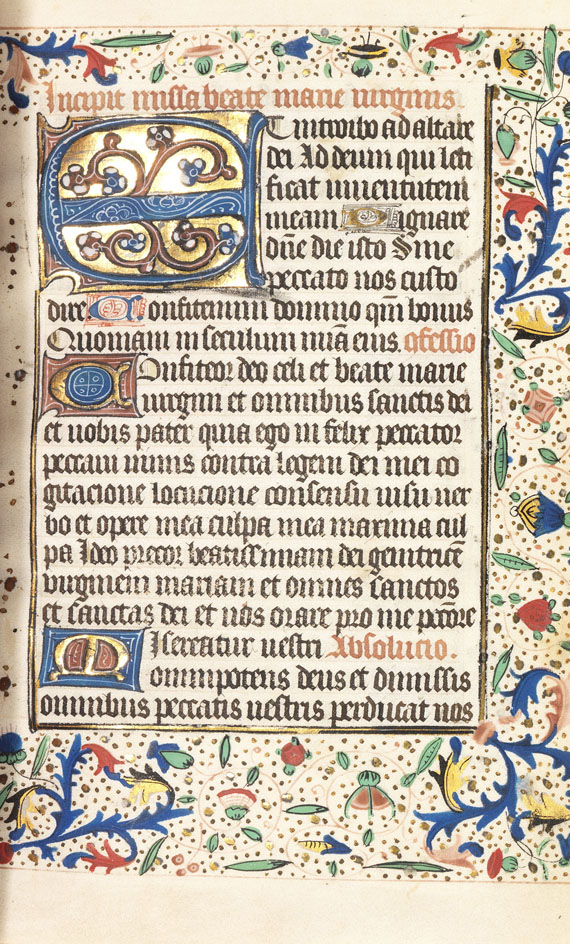 Incipit missa beate marie uirginis.
Et introibo ad altare
dei Ad deum qui leti
ficat iuuentutem
meam Dignare
dn̄e die isto Sine
peccato nos custo
dire Confitemini domino qm̄ bonus
Quoniam in seculum mīa eius. ɔfessio
Confiteor deo celi et beate marie
uirgini et omnibus sanctis dei
et uobis pater quia ego in felix peccator
peccaui nimis contra legem dei mei co
gitacione locucione consensu uisu uer
bo et opere mea culpa mea maxima cul
pa Ideo precor beatissimam dei genitricē
uirginem mariam et omnes sanctos
et sanctas dei et uos orare pro me pctōre
Misereatur uestri Absolucio.
omnipotens deus et dimissis
omnibus peccatis uestris perducat nos